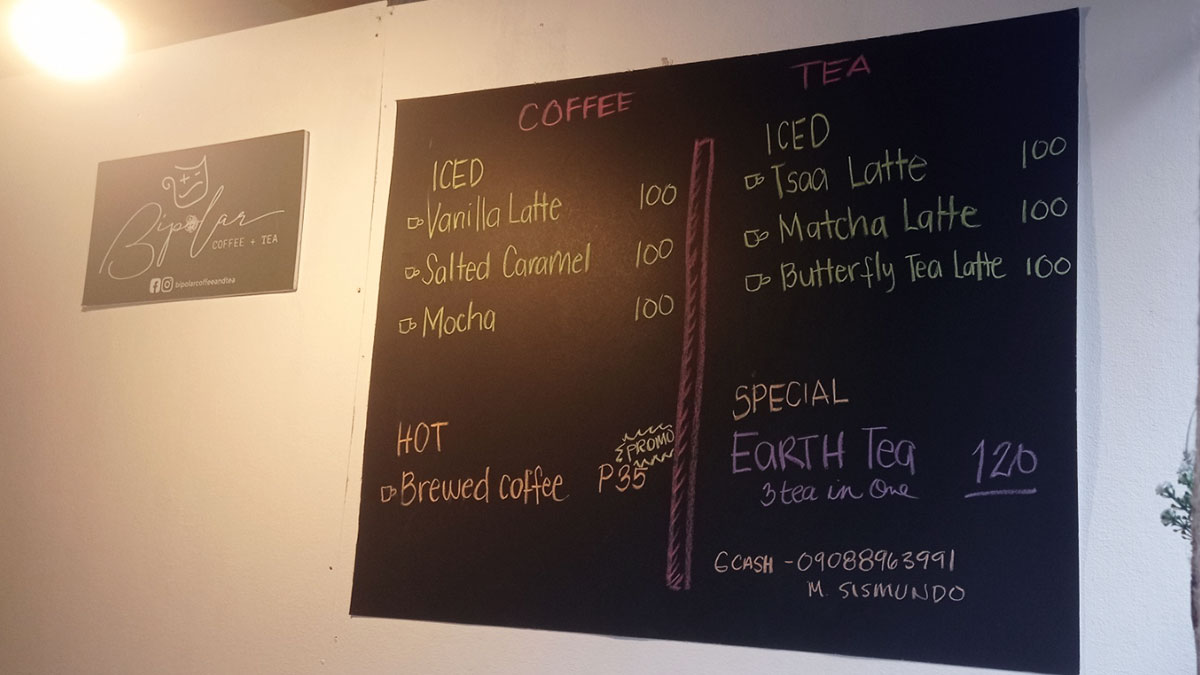 Bipolar
COFFEE + TEA
bipolarcoffeeandtea
COFFEE
ICED
Vanilla Latte 100
Salted Caramel 100
Mocha 100
HOT
PROMO
Brewed coffee P35
TEA
ICED
Tsaa Latte 100
Matcha Latte 100
Butterfly Tea Latte 100
SPECIAL
EARTH Tea 120
3 tea in One
GCASH - 09088963991
M. SISMUNDO